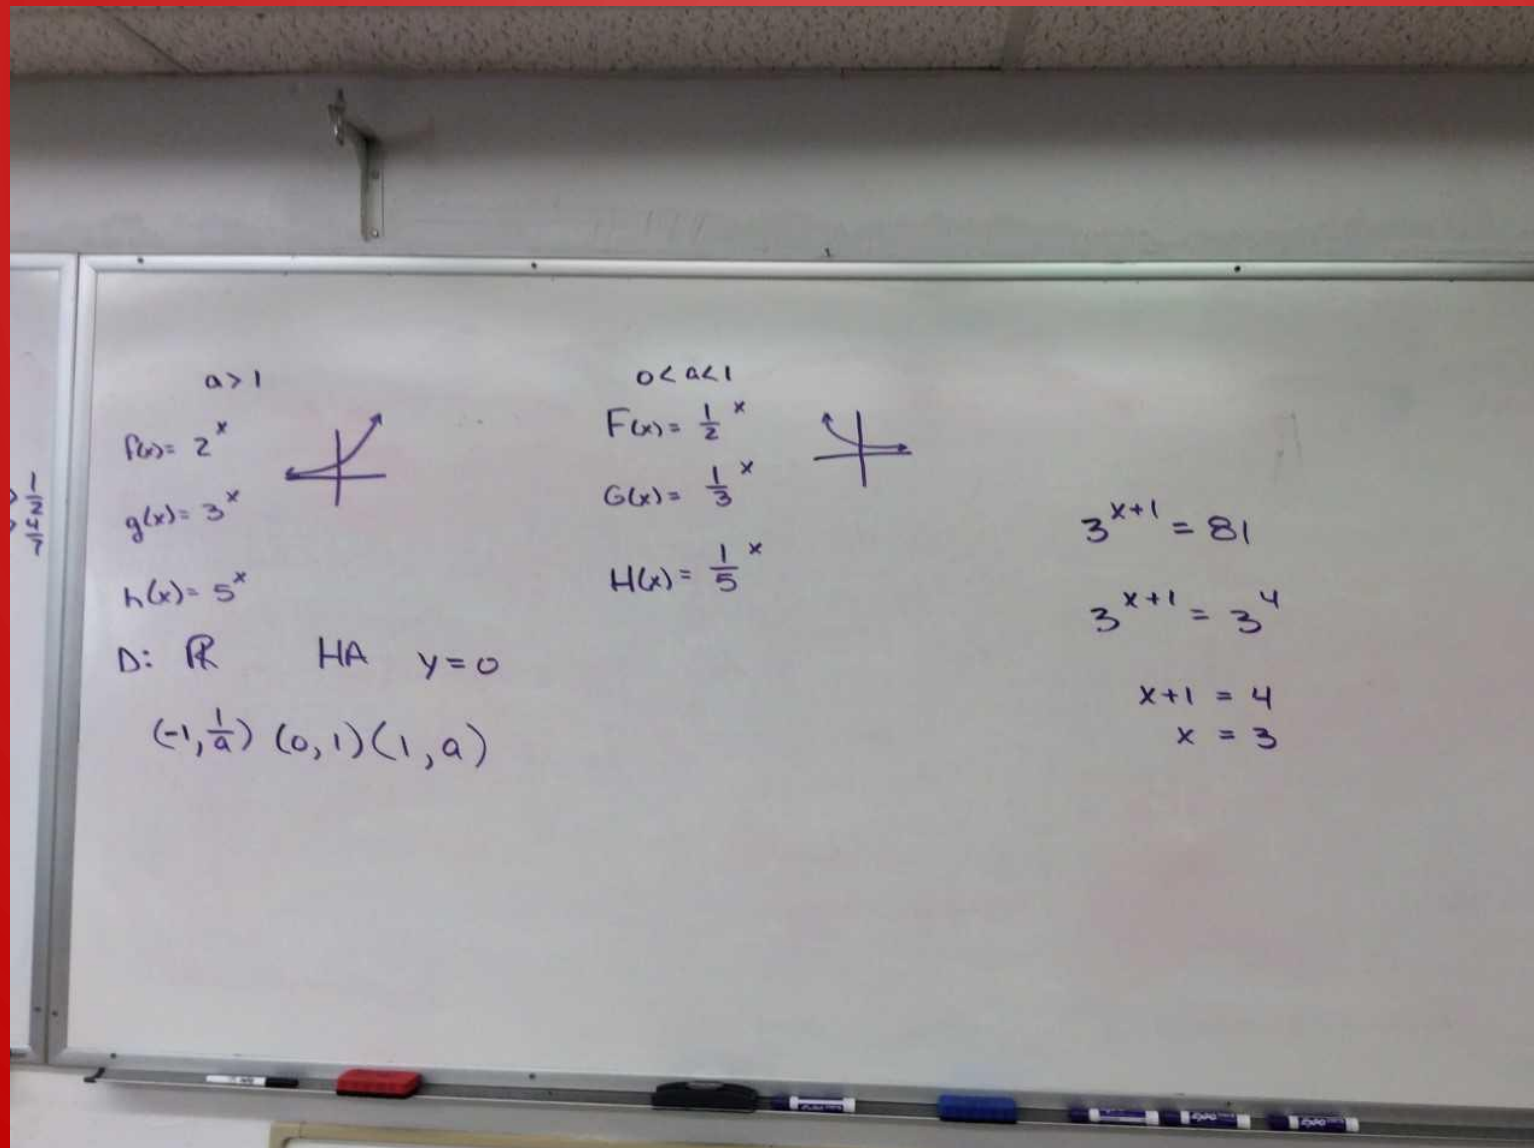 a > 1
f(x) = 2^x
g(x) = 3^x
h(x) = 5^x
D: ℝ HA y = 0
(-1, 1/a) (0, 1) (1, a)
0 < a < 1
F(x) = 1/2^x
G(x) = 1/3^x
H(x) = 1/5^x
3^(x+1) = 81
3^(x+1) = 3^4
x + 1 = 4
x = 3
EXPO
EXPO